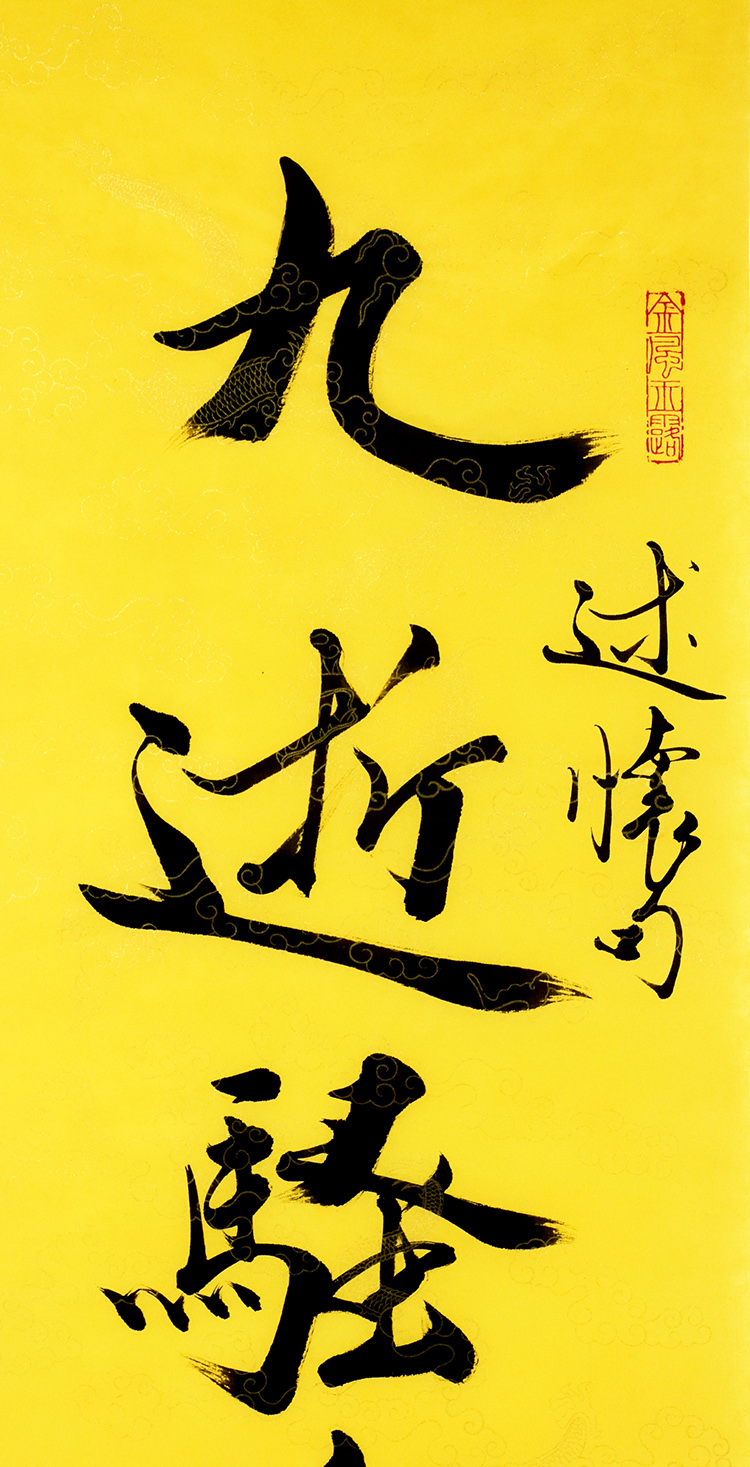 金風玉露
述懷句
九逝騷